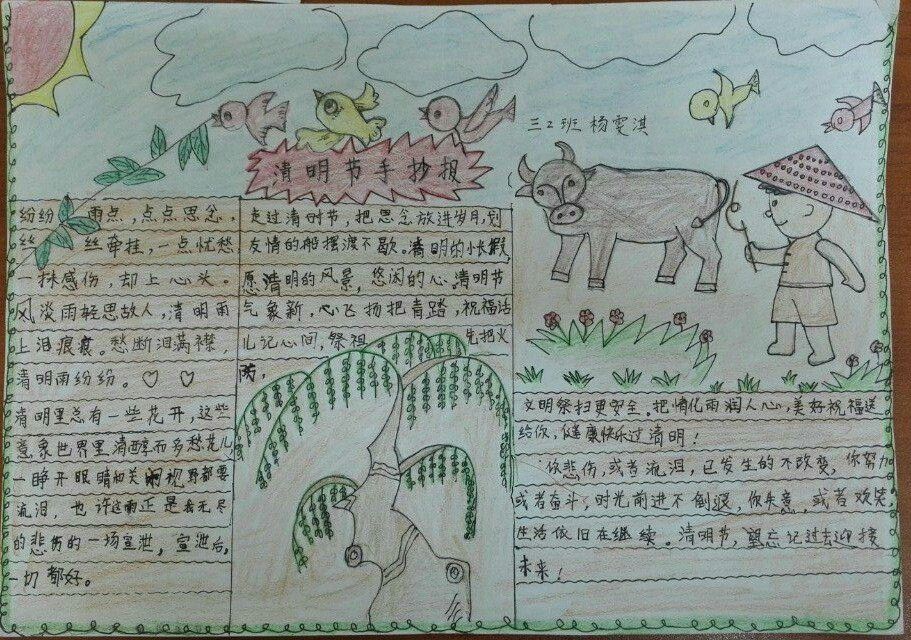 三2班 杨雯淇
清明节手抄报
纷纷 雨点，点点思念，
丝 丝牵挂，一点忧愁
一抹感伤，却上心头。
风淡雨轻思故人，清明雨
上泪痕衰。愁断泪满襟，
清明雨纷纷。
清明里总有一些花开，这些
意象世界里清醇而多愁花儿
一睁开眼睛相关 视野都要
流泪，也许这雨正是春无尽
的悲伤的一场宣泄，宣泄后，
一切都好。
走过清时节，把思念放进岁月，划
友情的船摆渡不歇。清明的小长假，
愿清明的风景，悠闲的心，清明节
气象新，心飞扬把青踏，祝福话
儿记心间，祭祖 先把火
防，
文明祭扫更安全。把情化雨润人心，美好祝福送
给你，健康快乐过清明！
你悲伤，或者流泪，已发生的不改变，你努力
或者奋斗，时光前进不倒退，你失意，或者欢笑，
生活依旧在继续。清明节，望忘记过去迎接
未来！